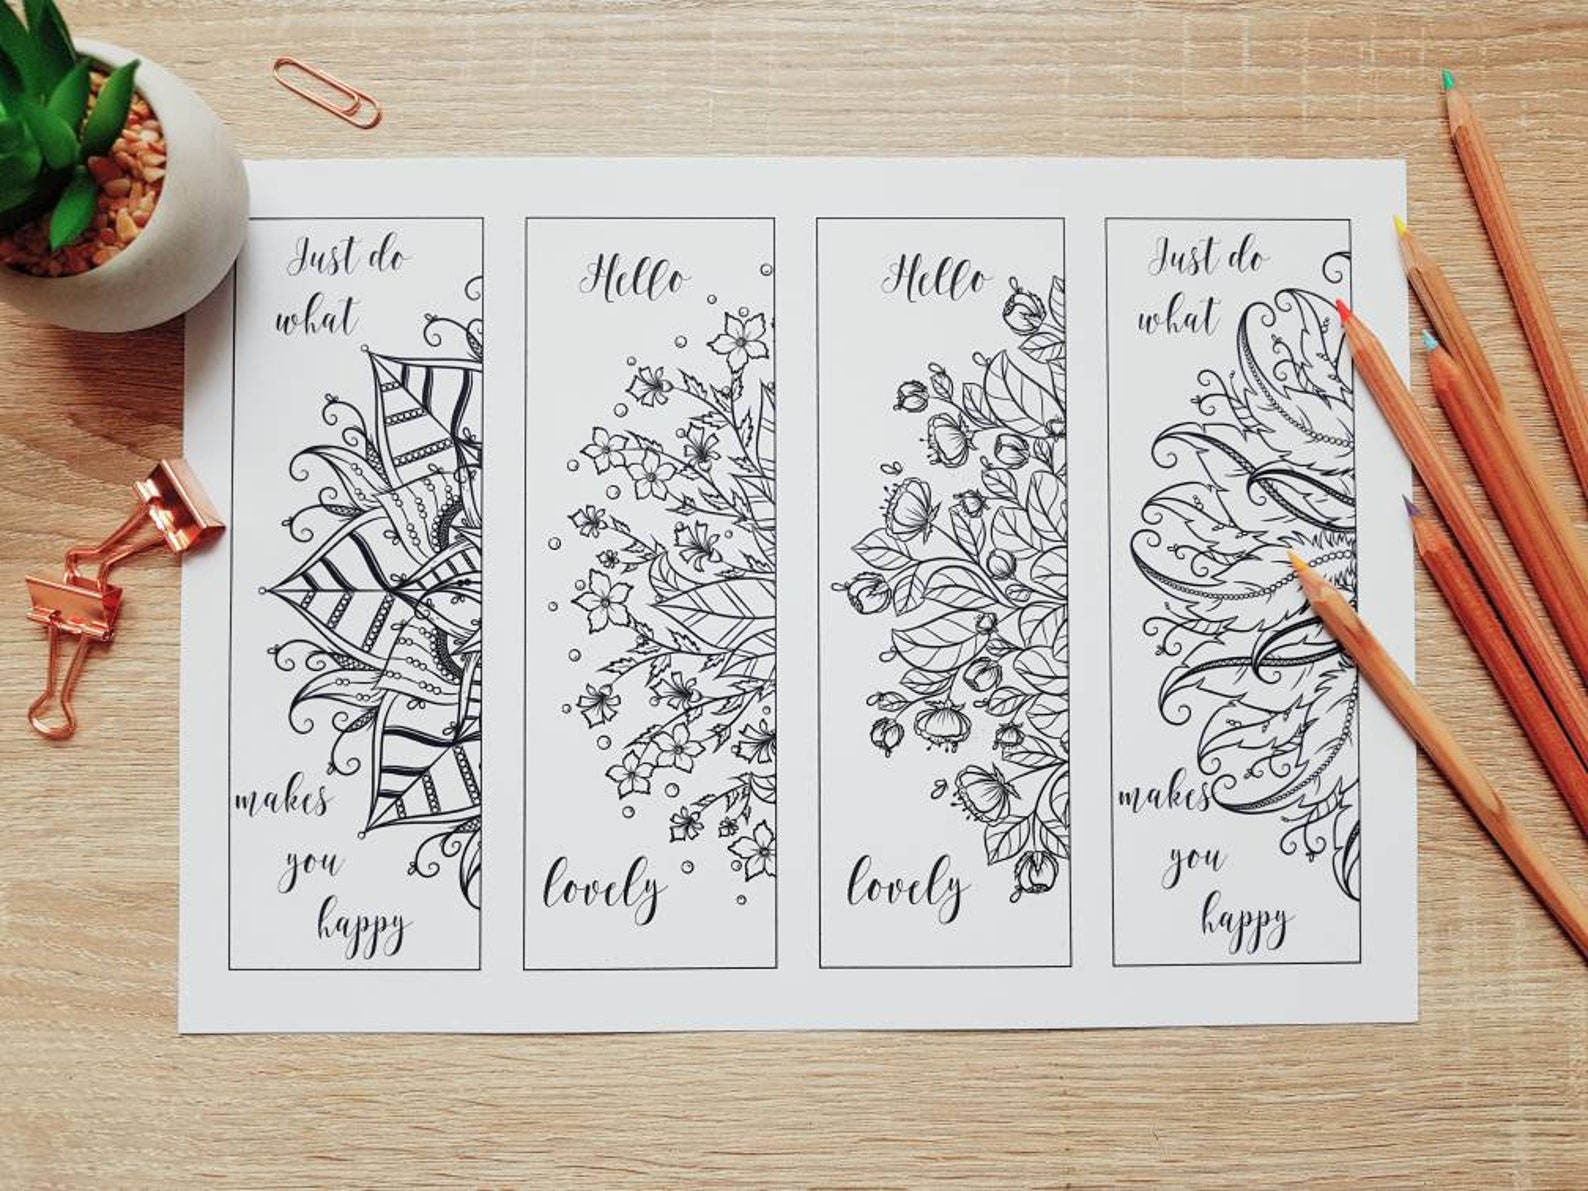 Just do
what
makes
you
happy
Hello
lovely
Hello
lovely
Just do
what
makes
you
happy